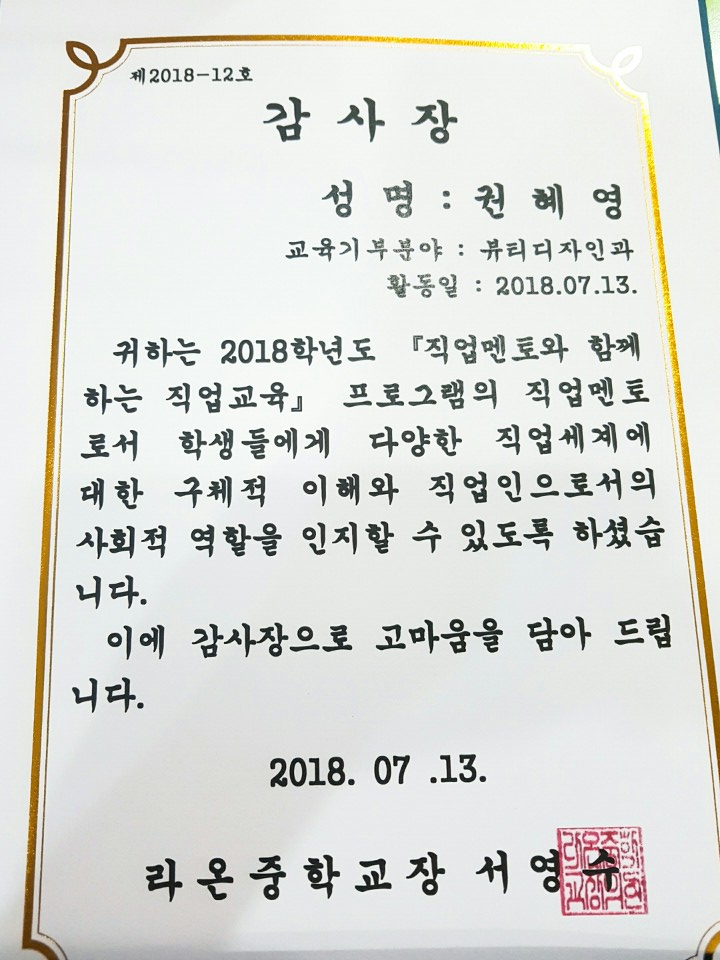 제2018-12호
감 사 장
성 명 : 권 혜 영
교육기부분야 : 뷰티디자인과
활동일 : 2018.07.13.
귀하는 2018학년도 『직업멘토와 함께
하는 직업교육』 프로그램의 직업멘토
로서 학생들에게 다양한 직업세계에
대한 구체적 이해와 직업인으로서의
사회적 역할을 인지할 수 있도록 하셨습
니다.
이에 감사장으로 고마움을 담아 드립
니다.
2018. 07 .13.
라온중학교장 서영수